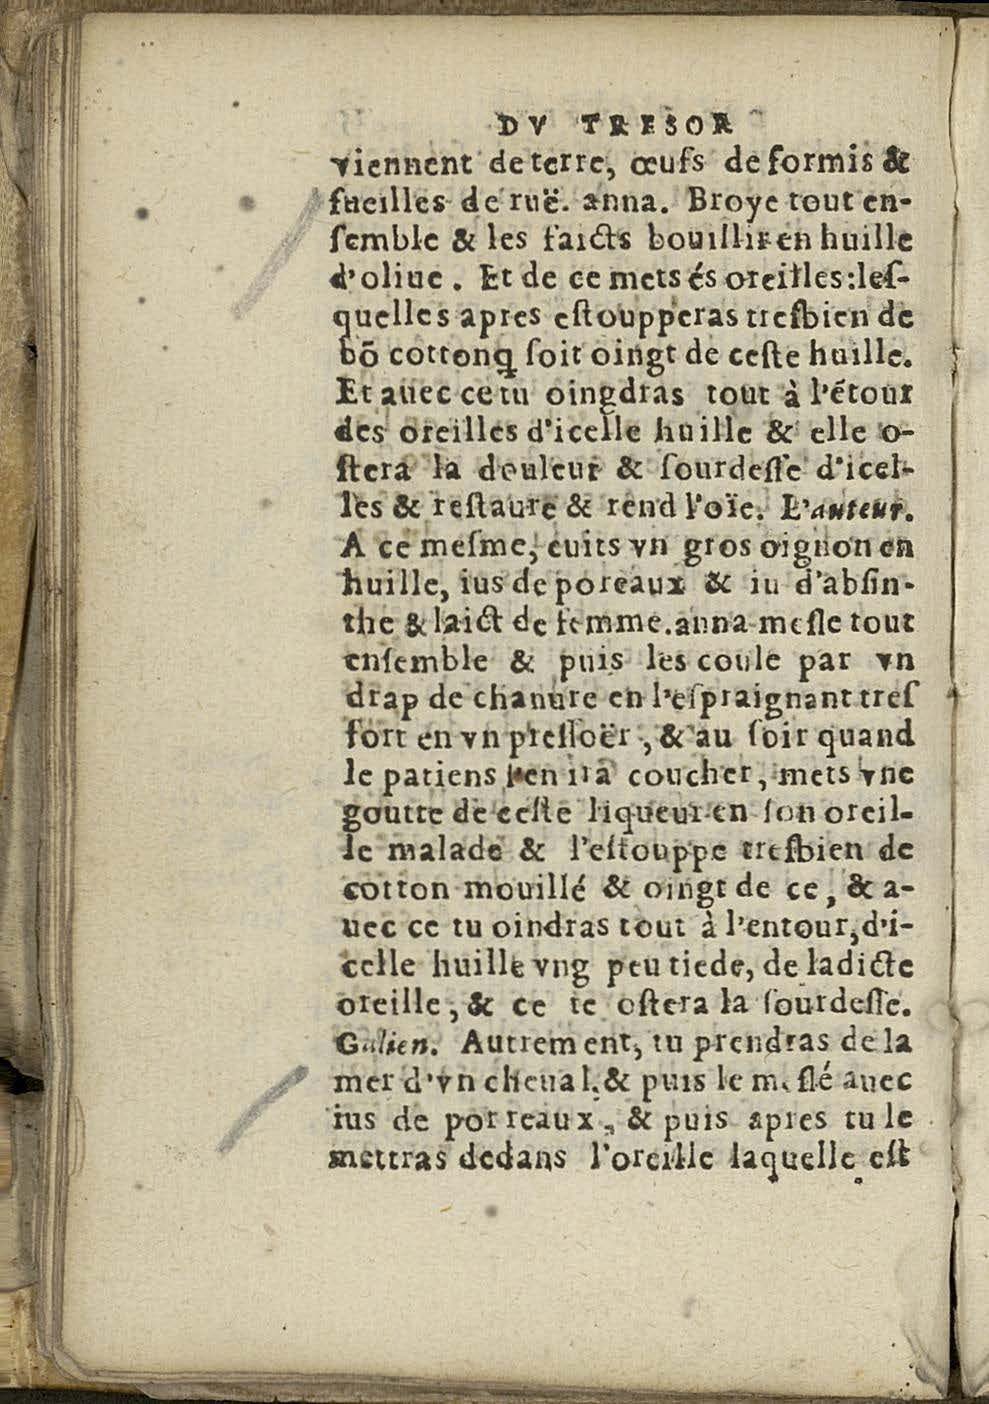 DV TRESOR
viennent de terre, œufs de formis &
fueilles de ruë. anna. Broye tout en-
ſemble & les faicts bouillir en huille
d'oliue. Et de ce mets és oreilles:leſ-
quelles apres eſtoupperas treſbien de
bõ cottonq̃ ſoit oingt de ceſte huille.
Et auec ce tu oingdras tout à l'étour
des oreilles d'icelle huille & elle o-
ſtera la douleur & ſourdeſſe d'icel-
les & reſtaure & rend l'oïe. L'auteur.
A ce meſme, cuits vn gros oignon en
huille, ius de poreaux & iu d'abſin-
the & laict de femme.anna meſle tout
enſemble & puis les coule par vn
drap de chanure en l'eſpraignant treſ
fort en vn preſſoër, & au ſoir quand
le patiens s'en ira coucher, mets vne
goutte de ceſte liqueur en ſon oreil-
le malade & l'eſtouppe treſbien de
cotton mouillé & oingt de ce, & a-
uec ce tu oindras tout à l'entour,d'i-
celle huille vng peu tiede, de ladicte
oreille, & ce te oſtera la ſourdeſſe.
Galien. Autrement, tu prendras de la
mer d'vn cheual.& puis le meſlé auec
ius de porreaux, & puis apres tu le
mettras dedans l'oreille laquelle eſt